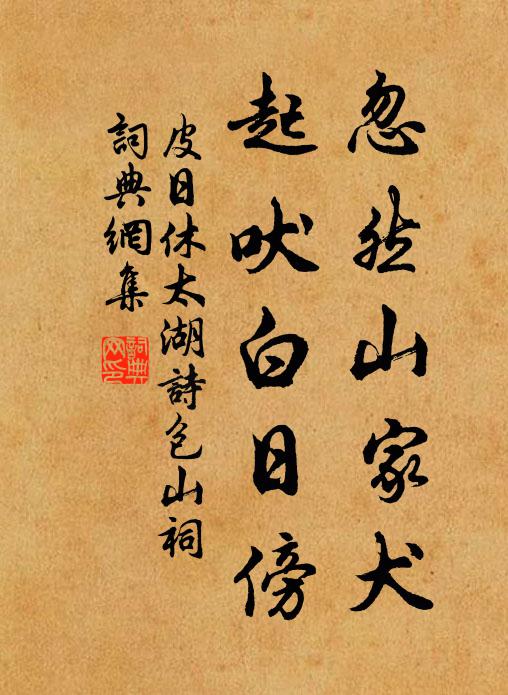 忽然山家犬
起吠白日傍
皮日休太湖詩包山祠
詞典網集
詞典網印